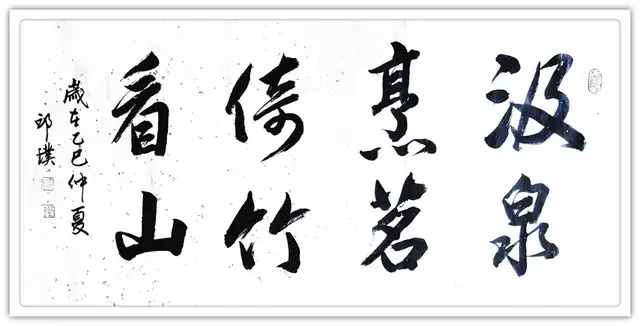 汲泉
烹茗
倚竹
看山
歲在乙巳仲夏
邱璞